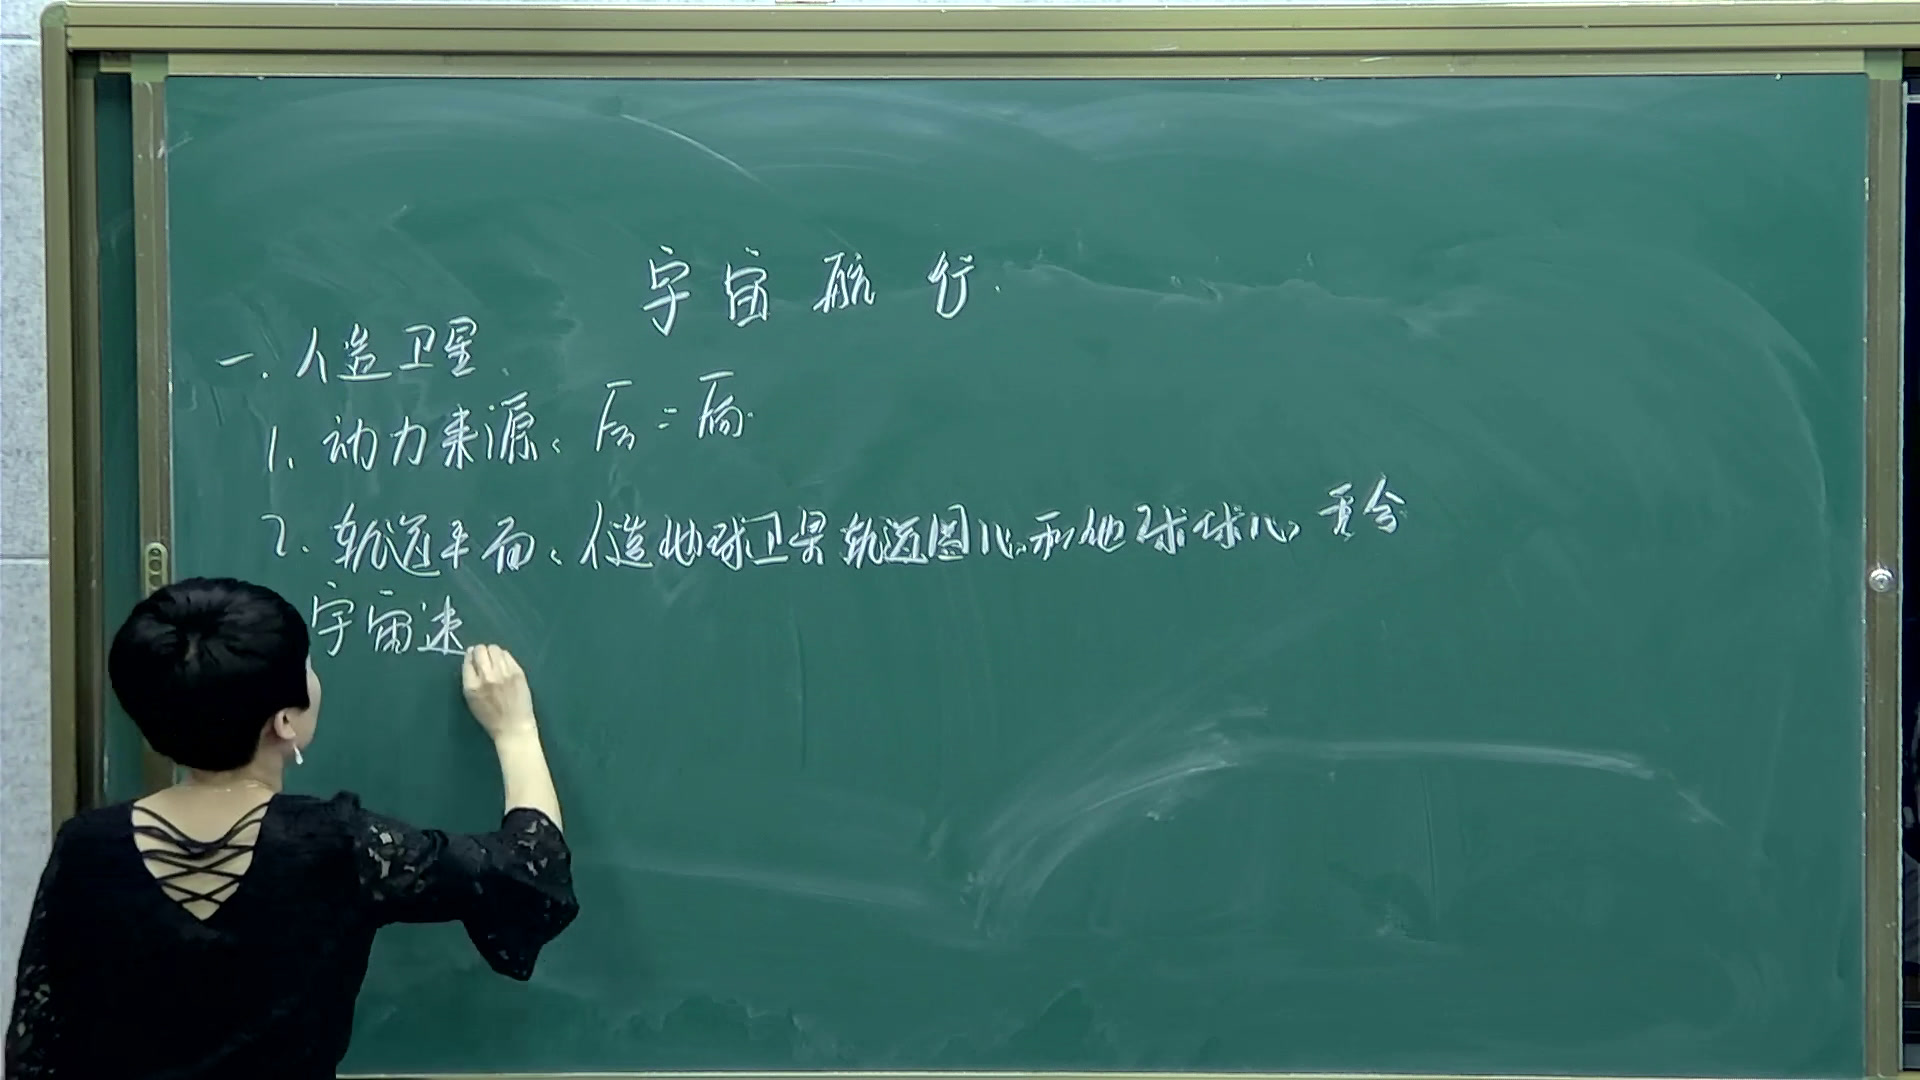 宇宙航行.
一. 人造卫星.
1. 动力来源: F万 = F向.
2. 轨道平面: 人造地球卫星轨道圆心和地球球心重合
宇宙速